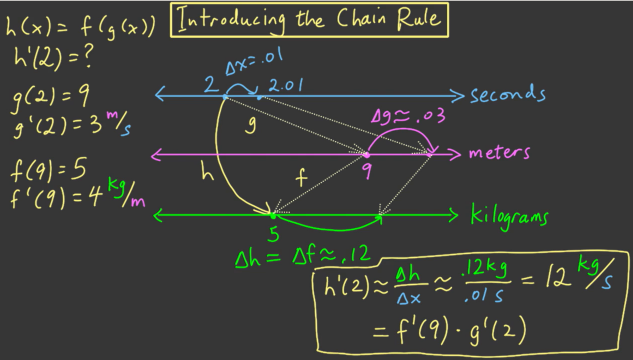 Introducing the Chain Rule
h(x) = f(g(x))
h'(2) = ?
g(2) = 9
g'(2) = 3 m/s
f(9) = 5
f'(9) = 4 kg/m
Δx = .01
2 2.01
seconds
g
Δg ≈ .03
meters
9
h
f
kilograms
5
Δh = Δf ≈ .12
h'(2) ≈ Δh/Δx ≈ .12kg/.01 s = 12 kg/s
= f'(9) · g'(2)